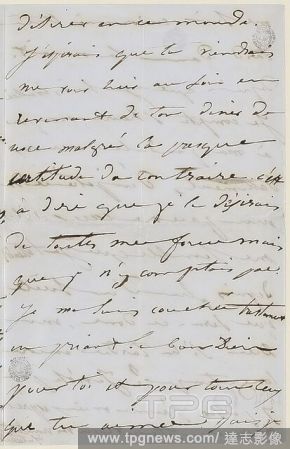 désirer en ce monde.
J'espérais que tu viendrais
me voir hier au soir en
revenant de ton dîner de
noce malgré la presque
certitude du contraire c'est
à dire que je le désirais
de toutes mes forces mais
que je n'y comptais pas.
Je me suis couchée tristement
en priant le bon Dieu
pour toi et pour tous ceux
que tu aimes. Puis je
TPG
www.tpgnews.com / 達志影像